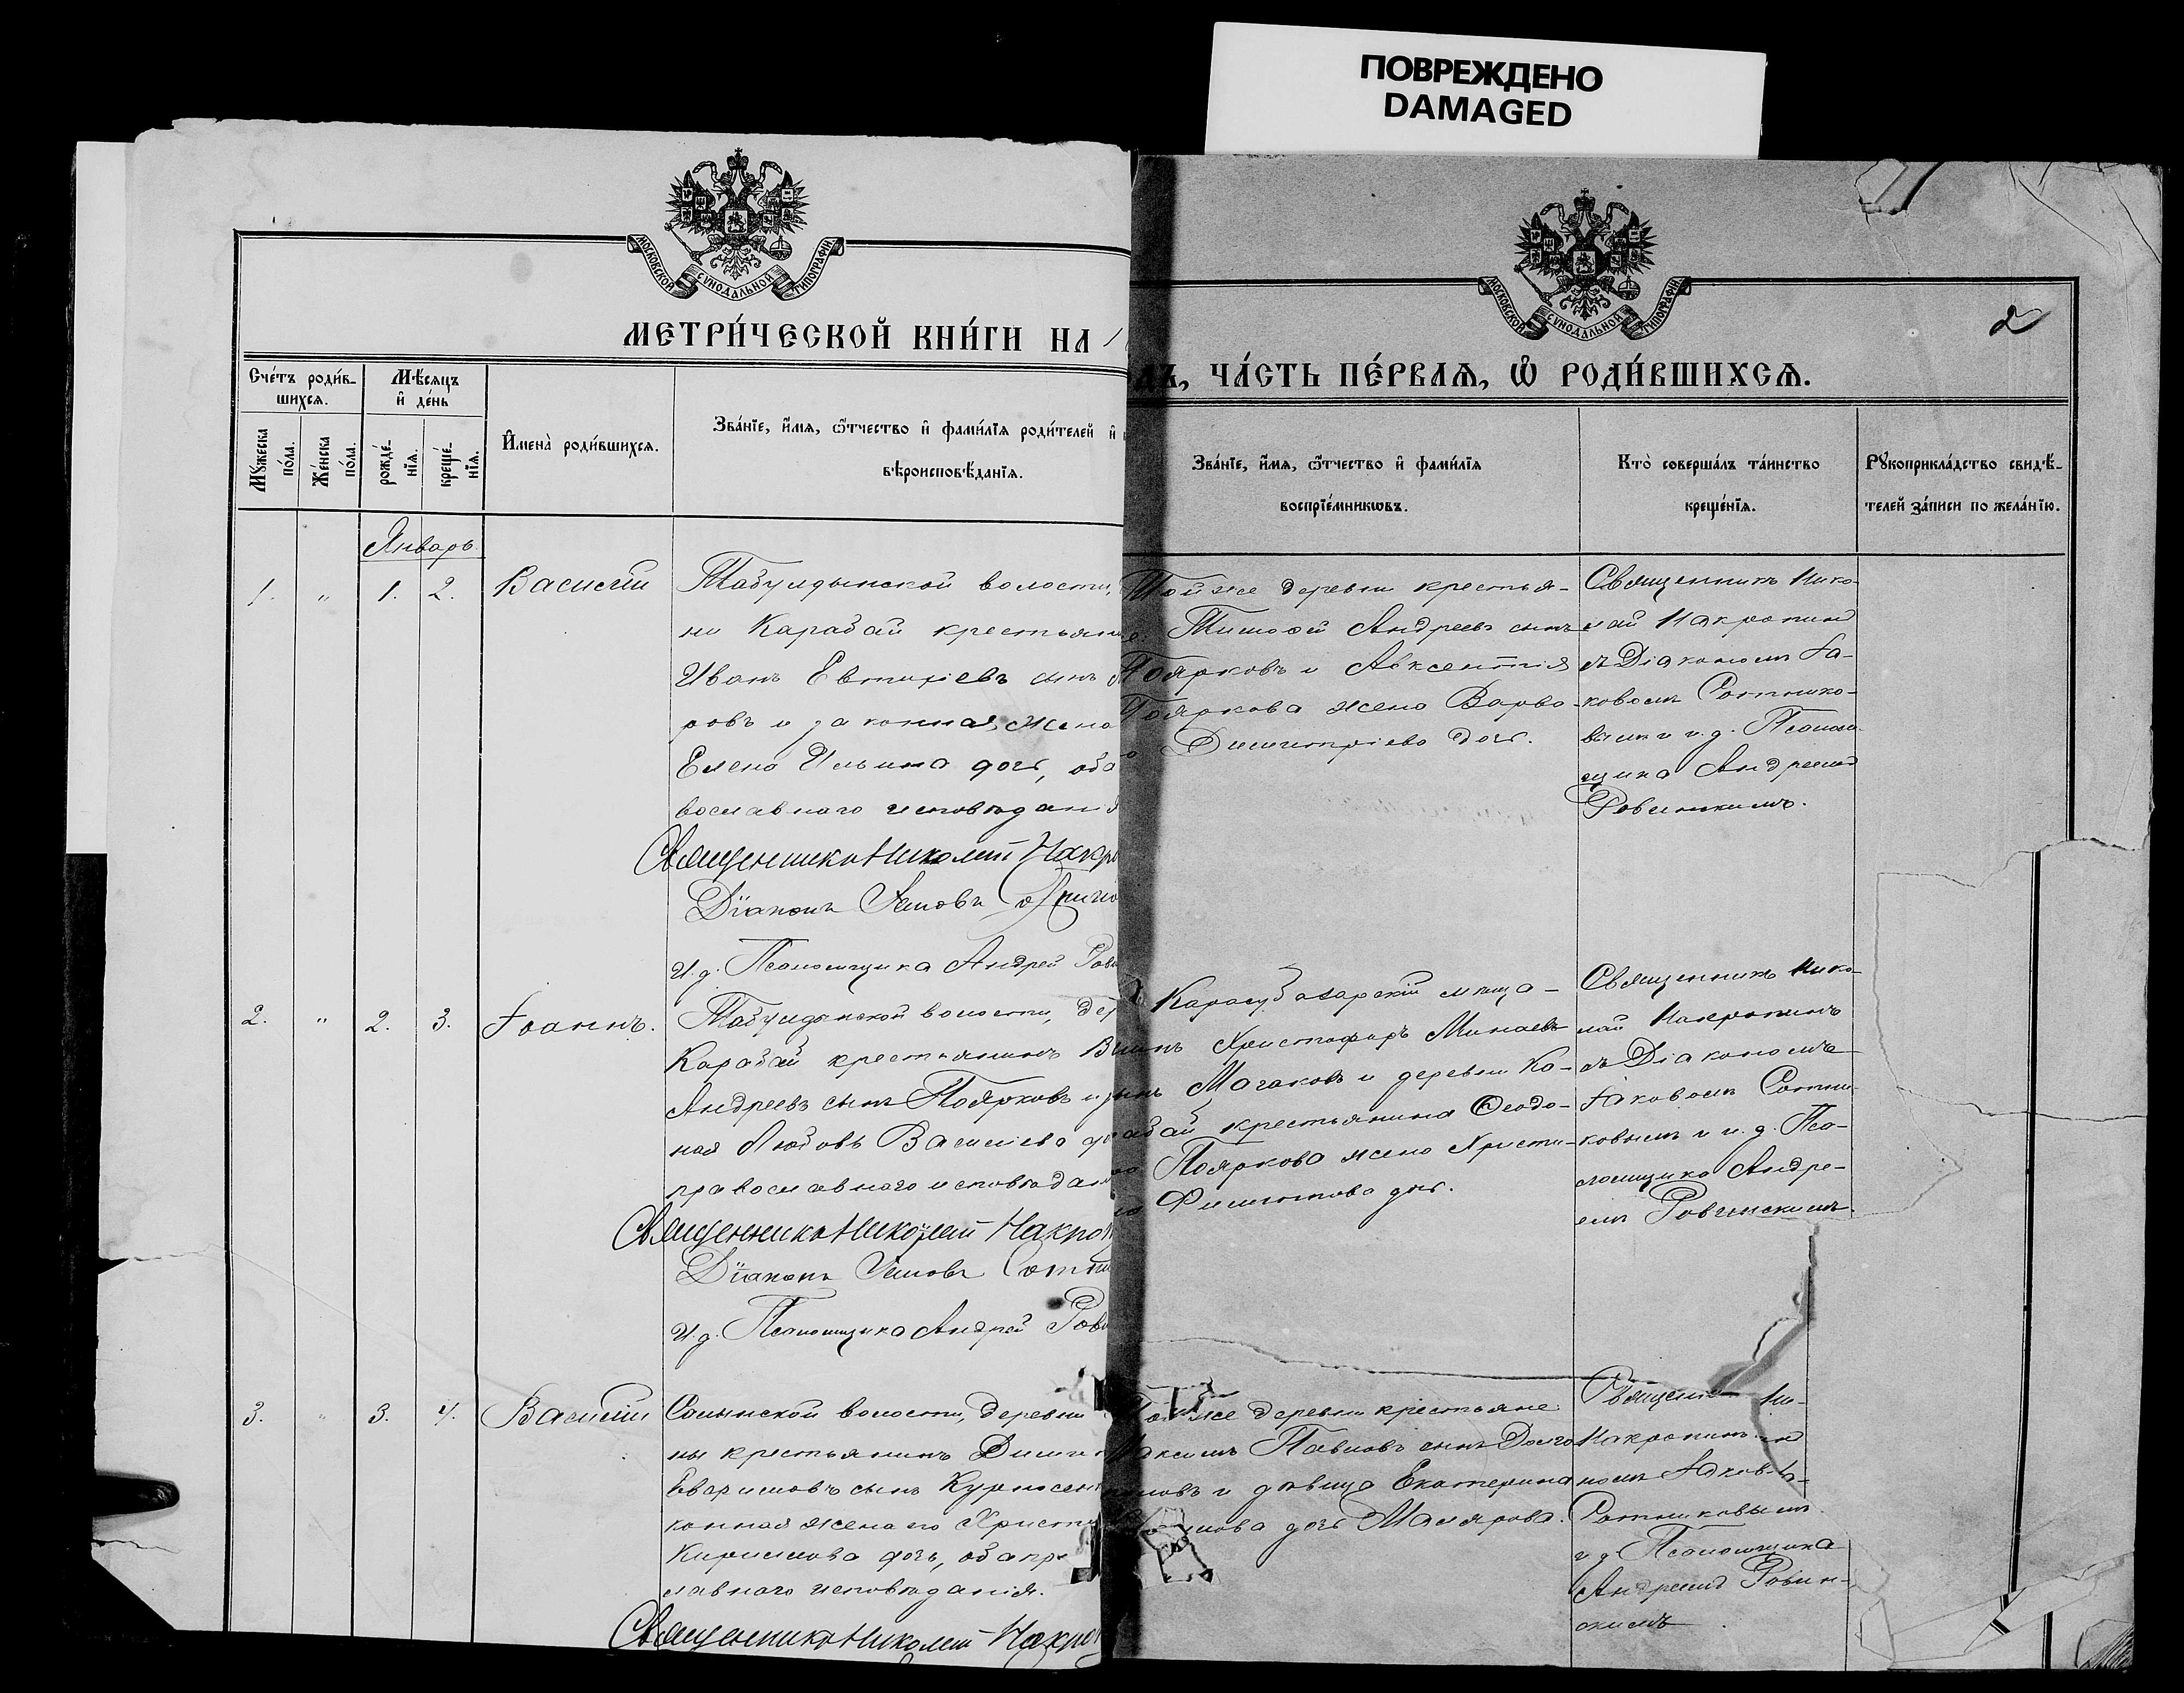 ПОВРЕЖДЕНО
DAMAGED
МОСКОВСКОЙ СУНОДАЛЬНОЙ ТИПОГРАФІИ
МОСКОВСКОЙ СУНОДАЛЬНОЙ ТИПОГРАФІИ
2
МЕТРИ́ЧЕСКОЙ КНИ́ГИ НА 1
ЧА́СТЬ ПЕ́РВАѦ, Ѿ РОДИ́ВШИХСѦ.
Сче́тъ роди́в-
шихсѧ.
Мꙋжеска
по́ла.
Же́нска
по́ла.
Мѣ́сѧцъ
и҆ де́нь
рожде́-
нїѧ.
креще́-
нїѧ.
И҆мена̀ роди́вшихсѧ.
Зва́нїе, и҆́мѧ, ѻ҆́тчество и҆ фами́лїѧ роди́телей и҆
вѣроисповѣ́данїѧ.
Зва́нїе, и҆́мѧ, ѻ҆́тчество и҆ фами́лїѧ
воспрїе́мникѡвъ.
Кто̀ соверша́лъ та́инство
креще́нїѧ.
Рꙋкоприкла́дство свидѣ́-
телей за́писи по жела́нїю.
Январь
1. " 1. 2. Василій
Табулдынской волости,
ни Карабай крестьяни
Иванъ Евтихіевъ сынъ
ровъ и законная жена
Елена Ильина дочь, оба
вославнаго исповѣданія
Священникъ Николай Накро
Діаконъ Іаковъ
И. д. Псаломщика Андрей Рови
Той же деревни крестья-
Тимофей Андреевъ сынъ
Поярковъ и Авксентія
Пояркова жена Варва-
Димитріева дочь.
Священникъ Нико-
лай Накропинъ
съ Діакономъ Іа-
ковомъ Сотнико-
вымъ и и. д. Псалом-
щика Андреемъ
Ровинскимъ.
2. " 2. 3. Іоаннъ.
Табулдынской волости, дер
Карабай крестьянинъ
Андреевъ сынъ Поярковъ и
ная Любовь Васильева до
православнаго исповѣдан
Священникъ Николай Накро
Діаконъ Іаковъ Сотни
И. д. Псаломщика Андрей Рови
Карасубазарскій мѣща-
нинъ Христофоръ Минаевъ
Могаковъ и деревни Ка-
рабай крестьянина Ѳеодо-
Пояркова жена Христи-
Филиппова дочь.
Священникъ Нико-
лай Накропинъ
съ Діакономъ
Іаковомъ Сотни-
ковымъ и и. д. Пса-
ломщика Андре-
емъ Ровинскимъ.
3. " 3. 4. Василій
Салынской волости, деревни
ны крестьянинъ Димит
сынъ Курносен
конная жена его Христи
Кириллова дочь, оба пр
славнаго исповѣданія.
Священникъ Николай Накро
Той же деревни крестьяне:
Максимъ Павловъ сынъ Долго
новъ и дѣвица Екатерина
дочь Малярова.
Священ Ни-
Накропинъ
номъ Іаков
Сотниковымъ
и д. Псаломщика
Андреемъ Ровин-
скимъ